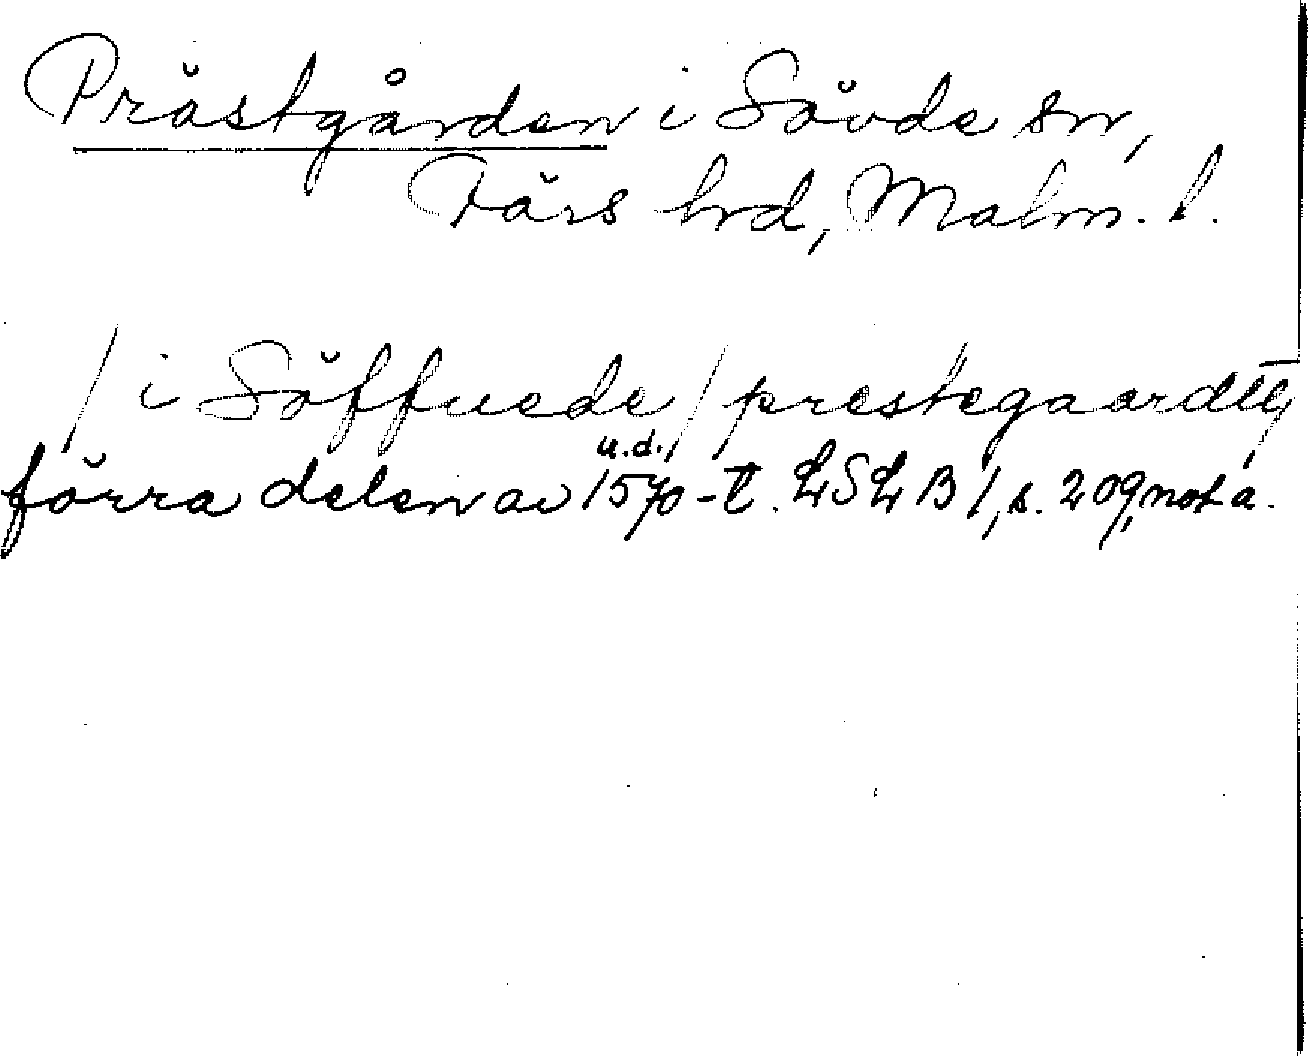 Prästgården i Sövde sn,
Färs hrd, Malm. l.
/ i Söffuede / prestegaardtt,
u.d.,
förra delen av 1570-t. LSLB 1, s. 209, not a.